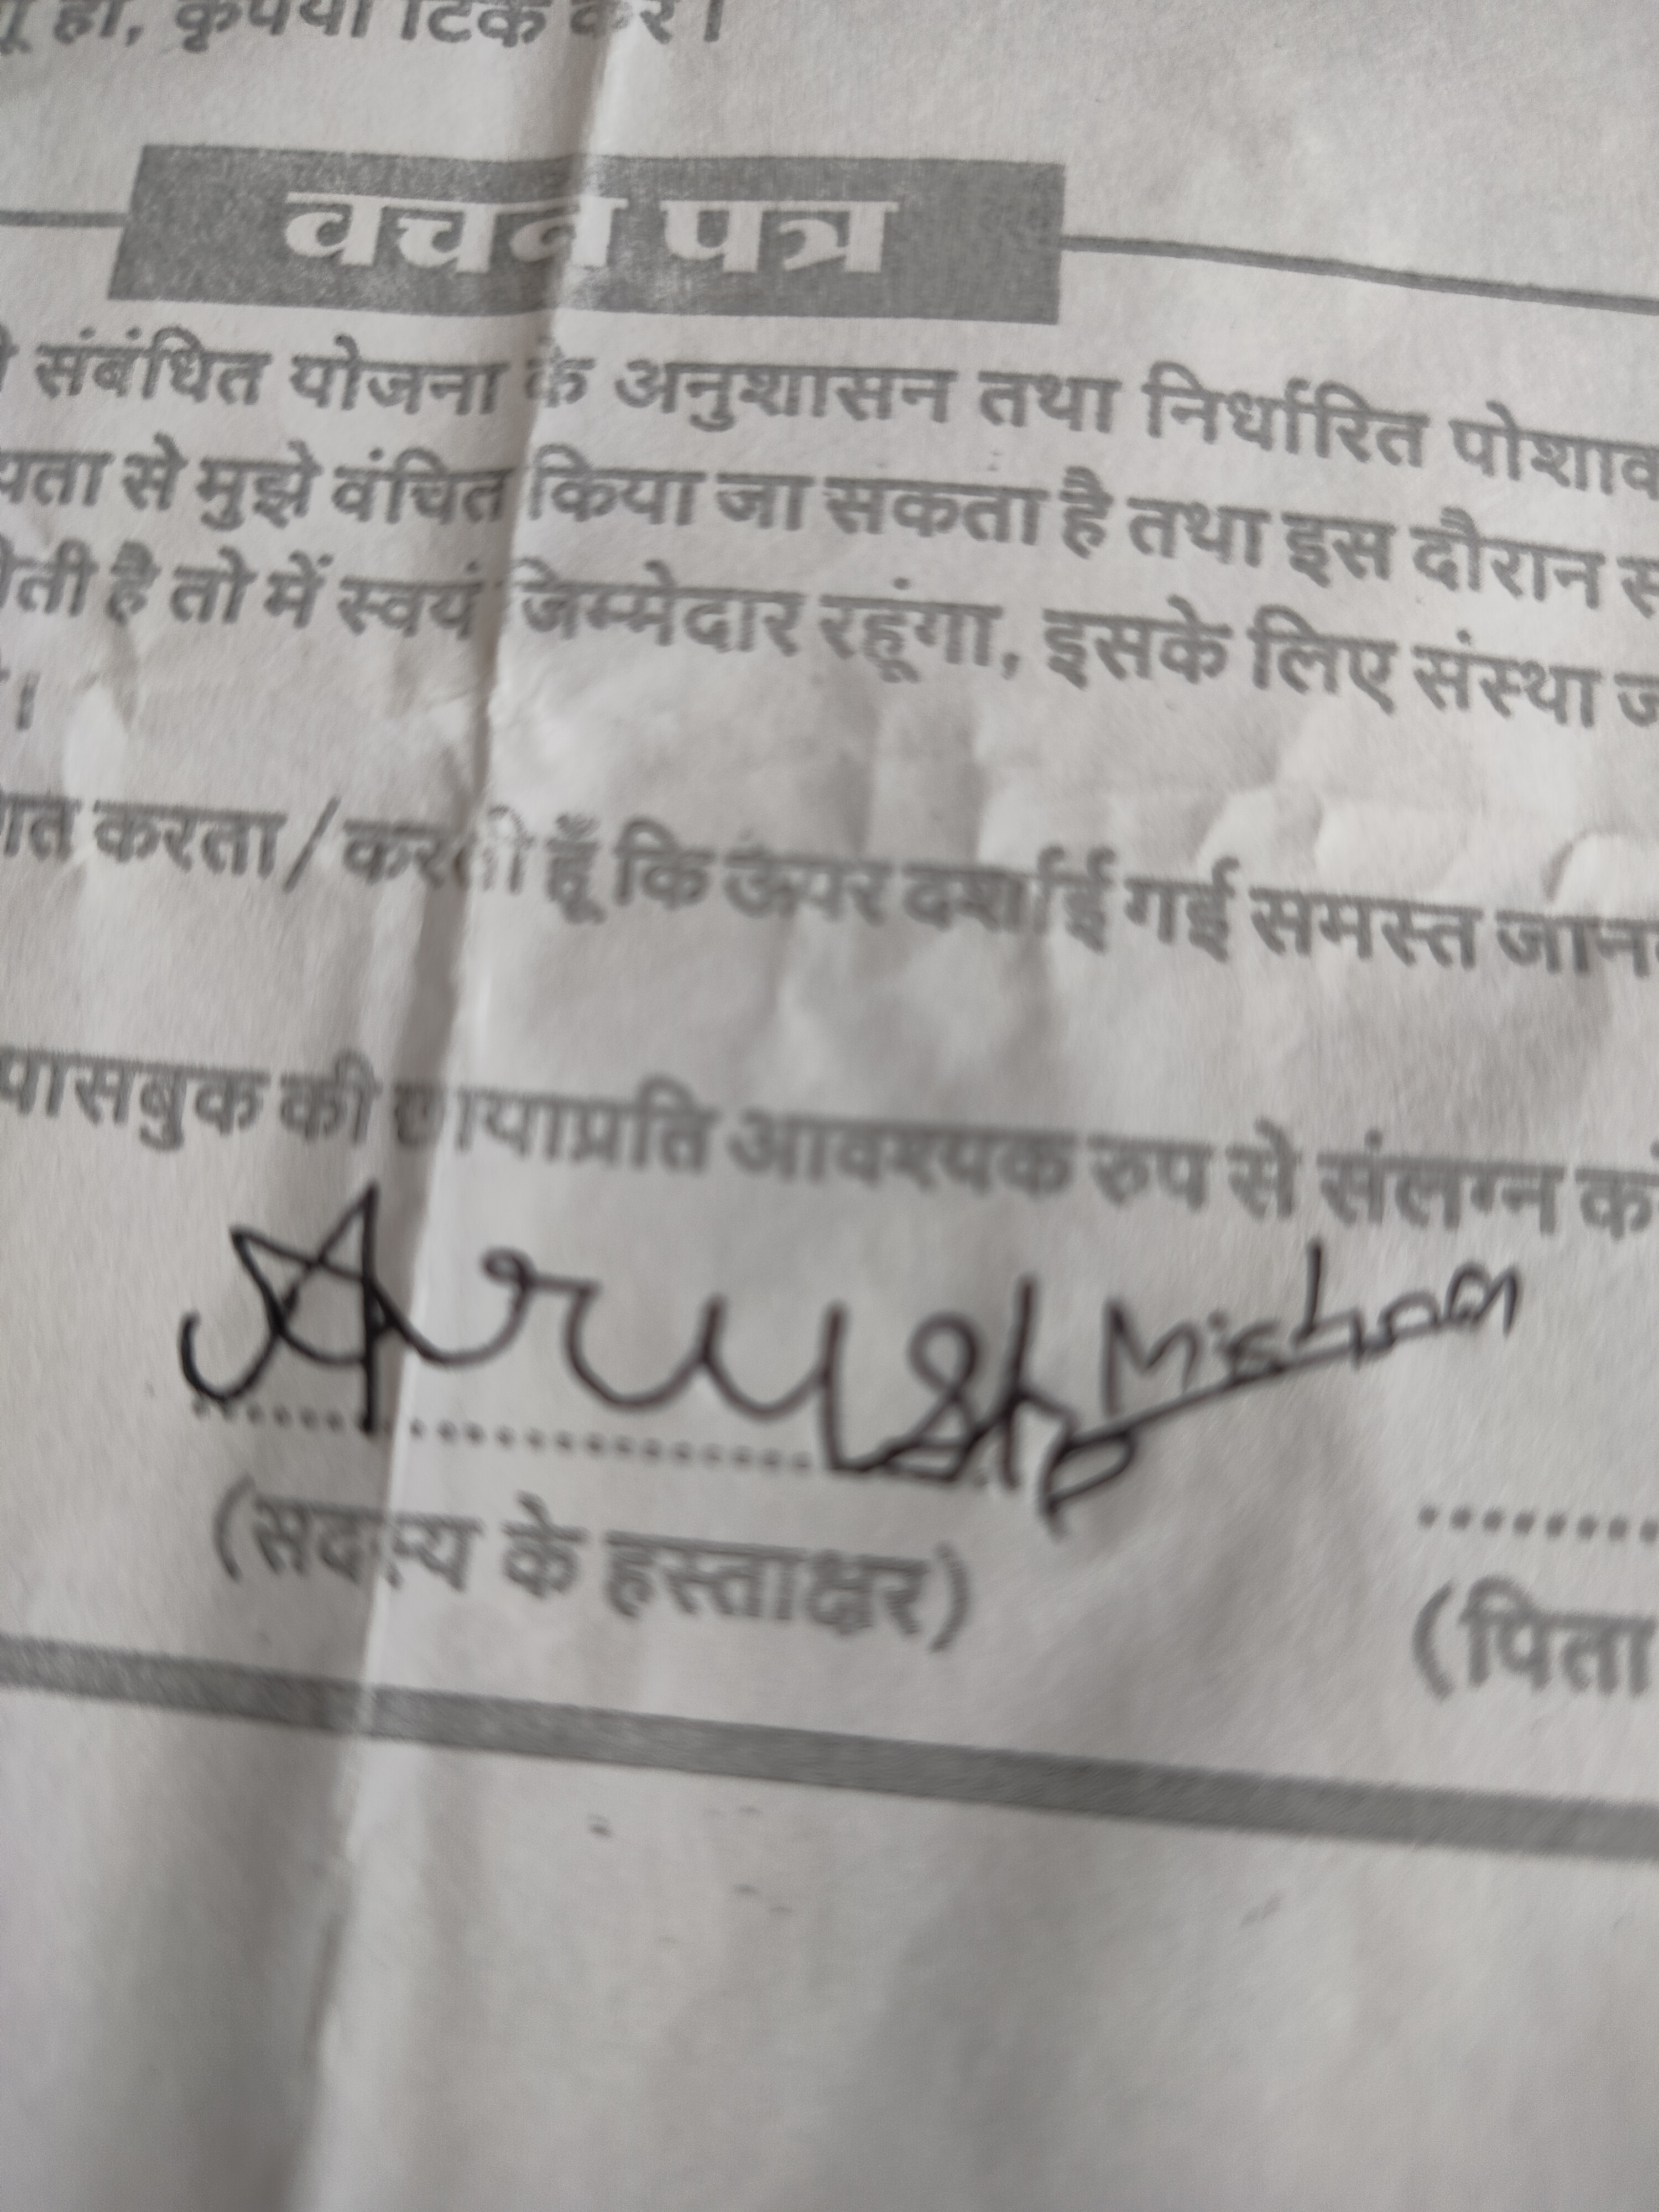 हो, कृपया टिक करें।
वचन पत्र
संबंधित योजना के अनुशासन तथा निर्धारित
से मुझे वंचित किया जा सकता है तथा इस दौरान
है तो में स्वयं जिम्मेदार रहूंगा, इसके लिए संस्था
।
करता / करती हूँ कि ऊपर दर्शाई गई समस्त
पासबुक की छायाप्रति आवश्यक रुप से संलग्न
Arushi Mishra
(सदस्य के हस्ताक्षर)
(पिता